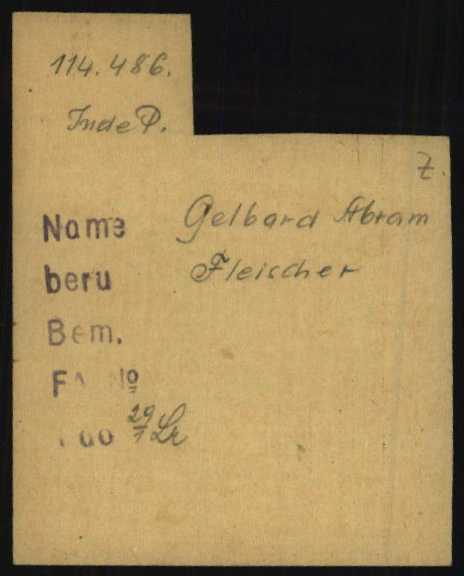 114.486.
Jude P.
Z.
Name Gelbard Abram
beru Fleischer
Bem.
No
29/1 Lr